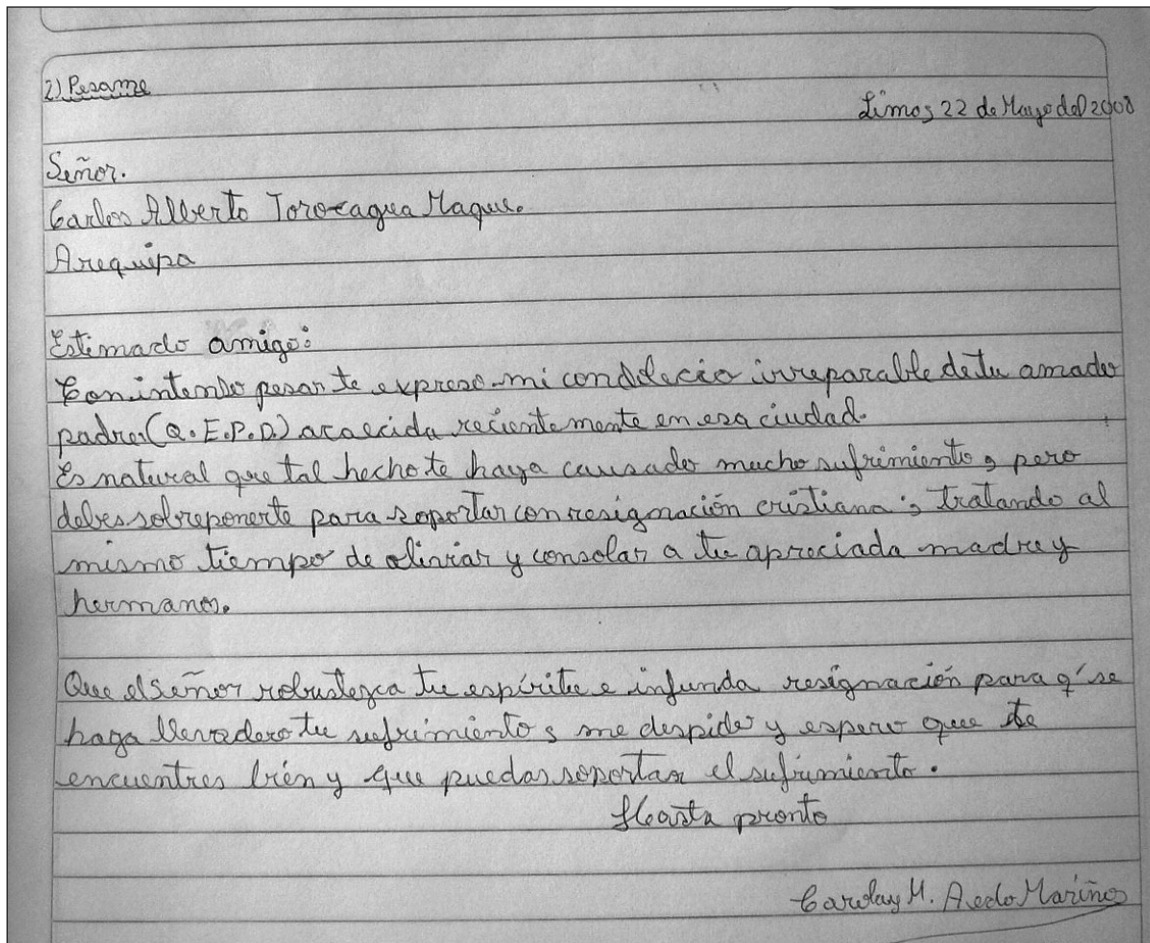 2) Pesame
Lima, 22 de Mayo del 2008
Señor.
Carlos Alberto Torocagua Maque.
Arequipa
Estimado amigo:
Con intenso pesar te expreso mi condolecio irreparable de tu amado
padre (Q.E.P.D.) acaecida recientemente en esa ciudad.
Es natural que tal hecho te haya causado mucho sufrimiento, pero
debes sobreponerte para soportar con resignación cristiana; tratando al
mismo tiempo de aliviar y consolar a tu apreciada madre y
hermanos.
Que el Señor robustezca tu espíritu e infunda resignación para q' se
haga llevadero tu sufrimiento, me despido y espero que te
encuentres bien y que puedas soportar el sufrimiento.
Hasta pronto
Carolay M. Aedo Mariños